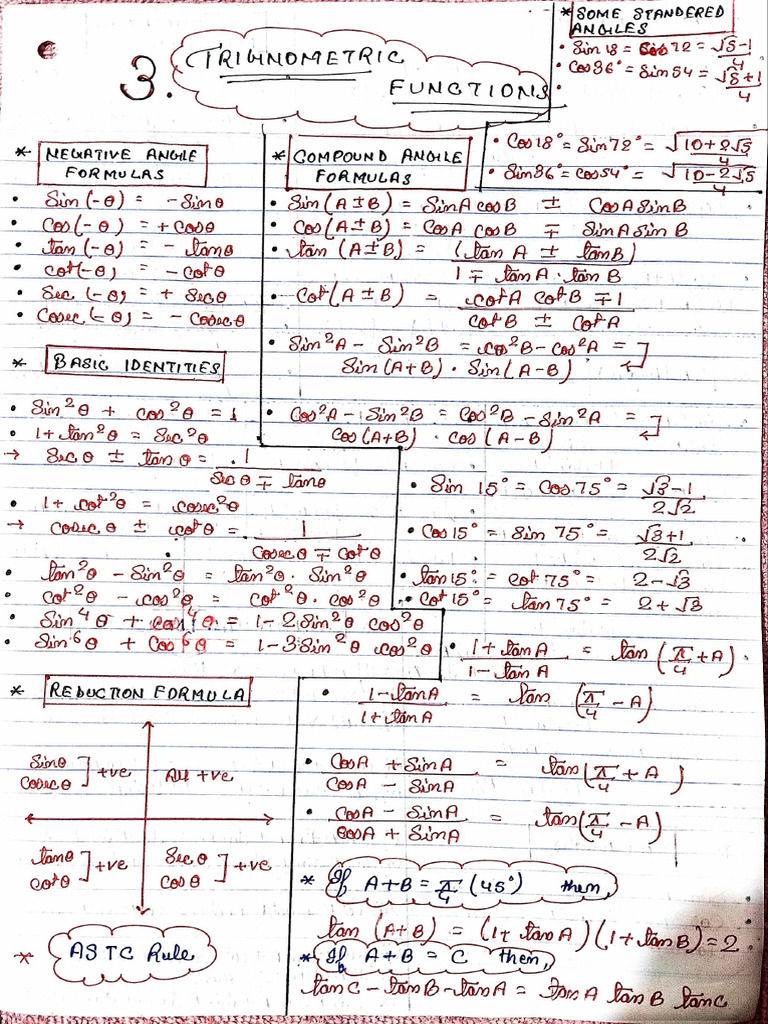 3. TRIGNOMETRIC
FUNCTIONS
* SOME STANDERED
ANGLES
• Sin 18 = Cos 72 = √5-1/4
• Cos36° = Sin 54 = √5+1/4
• Cos18° = Sin72° = √10+2√5/4
• Sin36° = cos54° = √10-2√5/4
* NEGATIVE ANGLE
FORMULAS
• Sin(-θ) = -Sinθ
• Cos(-θ) = +Cosθ
• tan(-θ) = - tanθ
• cot(-θ) = -cotθ
• Sec(-θ) = + Secθ
• Cosec(-θ) = - Cosecθ
* BASIC IDENTITIES
• Sin²θ + cos²θ = 1
• 1+tan²θ = Sec²θ
→ Secθ ± tanθ = 1/Secθ ∓ tanθ
• 1+ cot²θ = cosec²θ
→ Cosecθ ± cotθ = 1/Cosecθ ∓ Cotθ
• tan²θ - Sin²θ = tan²θ. Sin²θ
• cot²θ - cos²θ = cot²θ. cos²θ
• Sin⁴θ + cos⁴θ = 1-2Sin²θ cos²θ
• Sin⁶θ + Cos⁶θ = 1-3Sin²θ cos²θ
* COMPOUND ANGLE
FORMULAS
• Sin(A±B) = SinA cosB ± CosA SinB
• Cos(A±B) = CosA cosB ∓ SinA SinB
• tan(A±B) = (tanA ± tanB)/1 ∓ tanA.tanB
• Cot(A±B) = cotA cotB ∓1/cotB ± CotA
• Sin²A - Sin²B = cos²B-cos²A =
Sin(A+B)·Sin(A-B)
• Cos²A - Sin²B = Cos²B - Sin²A =
Cos(A+B)·cos(A-B)
• Sin 15° = Cos 75° = √3-1/2√2
• Cos15° = Sin 75° = √3+1/2√2
• tan15° = cot 75° = 2-√3
• Cot15° = tan75° = 2+√3
• 1+tanA/1-tanA = tan(π/4+A)
• 1-tanA/1+tanA = tan(π/4-A)
• CosA + SinA/CosA - SinA = tan(π/4+A)
• CosA - SinA/CosA + SinA = tan(π/4-A)
* REDUCTION FORMULA
Sinθ
Cosecθ ] +ve
All +ve
tanθ
cotθ ] +ve
Secθ
cosθ ] +ve
* ASTC Rule
* If A+B = π/4 (45°) then,
tan(A+B) = (1+tanA)(1+tanB)=2
* If A+B = C then,
tanC-tanB-tanA = tanA tanB tanC